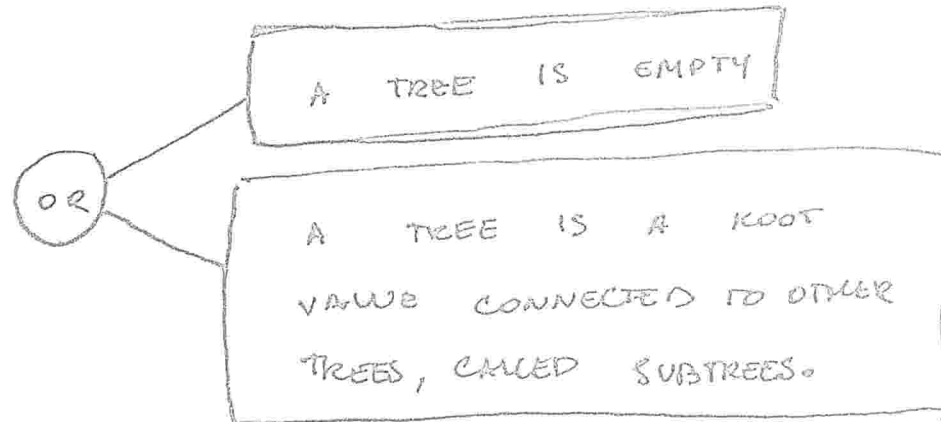 A TREE IS EMPTY
OR
A TREE IS A ROOT
VALUE CONNECTED TO OTHER
TREES, CALLED SUBTREES.